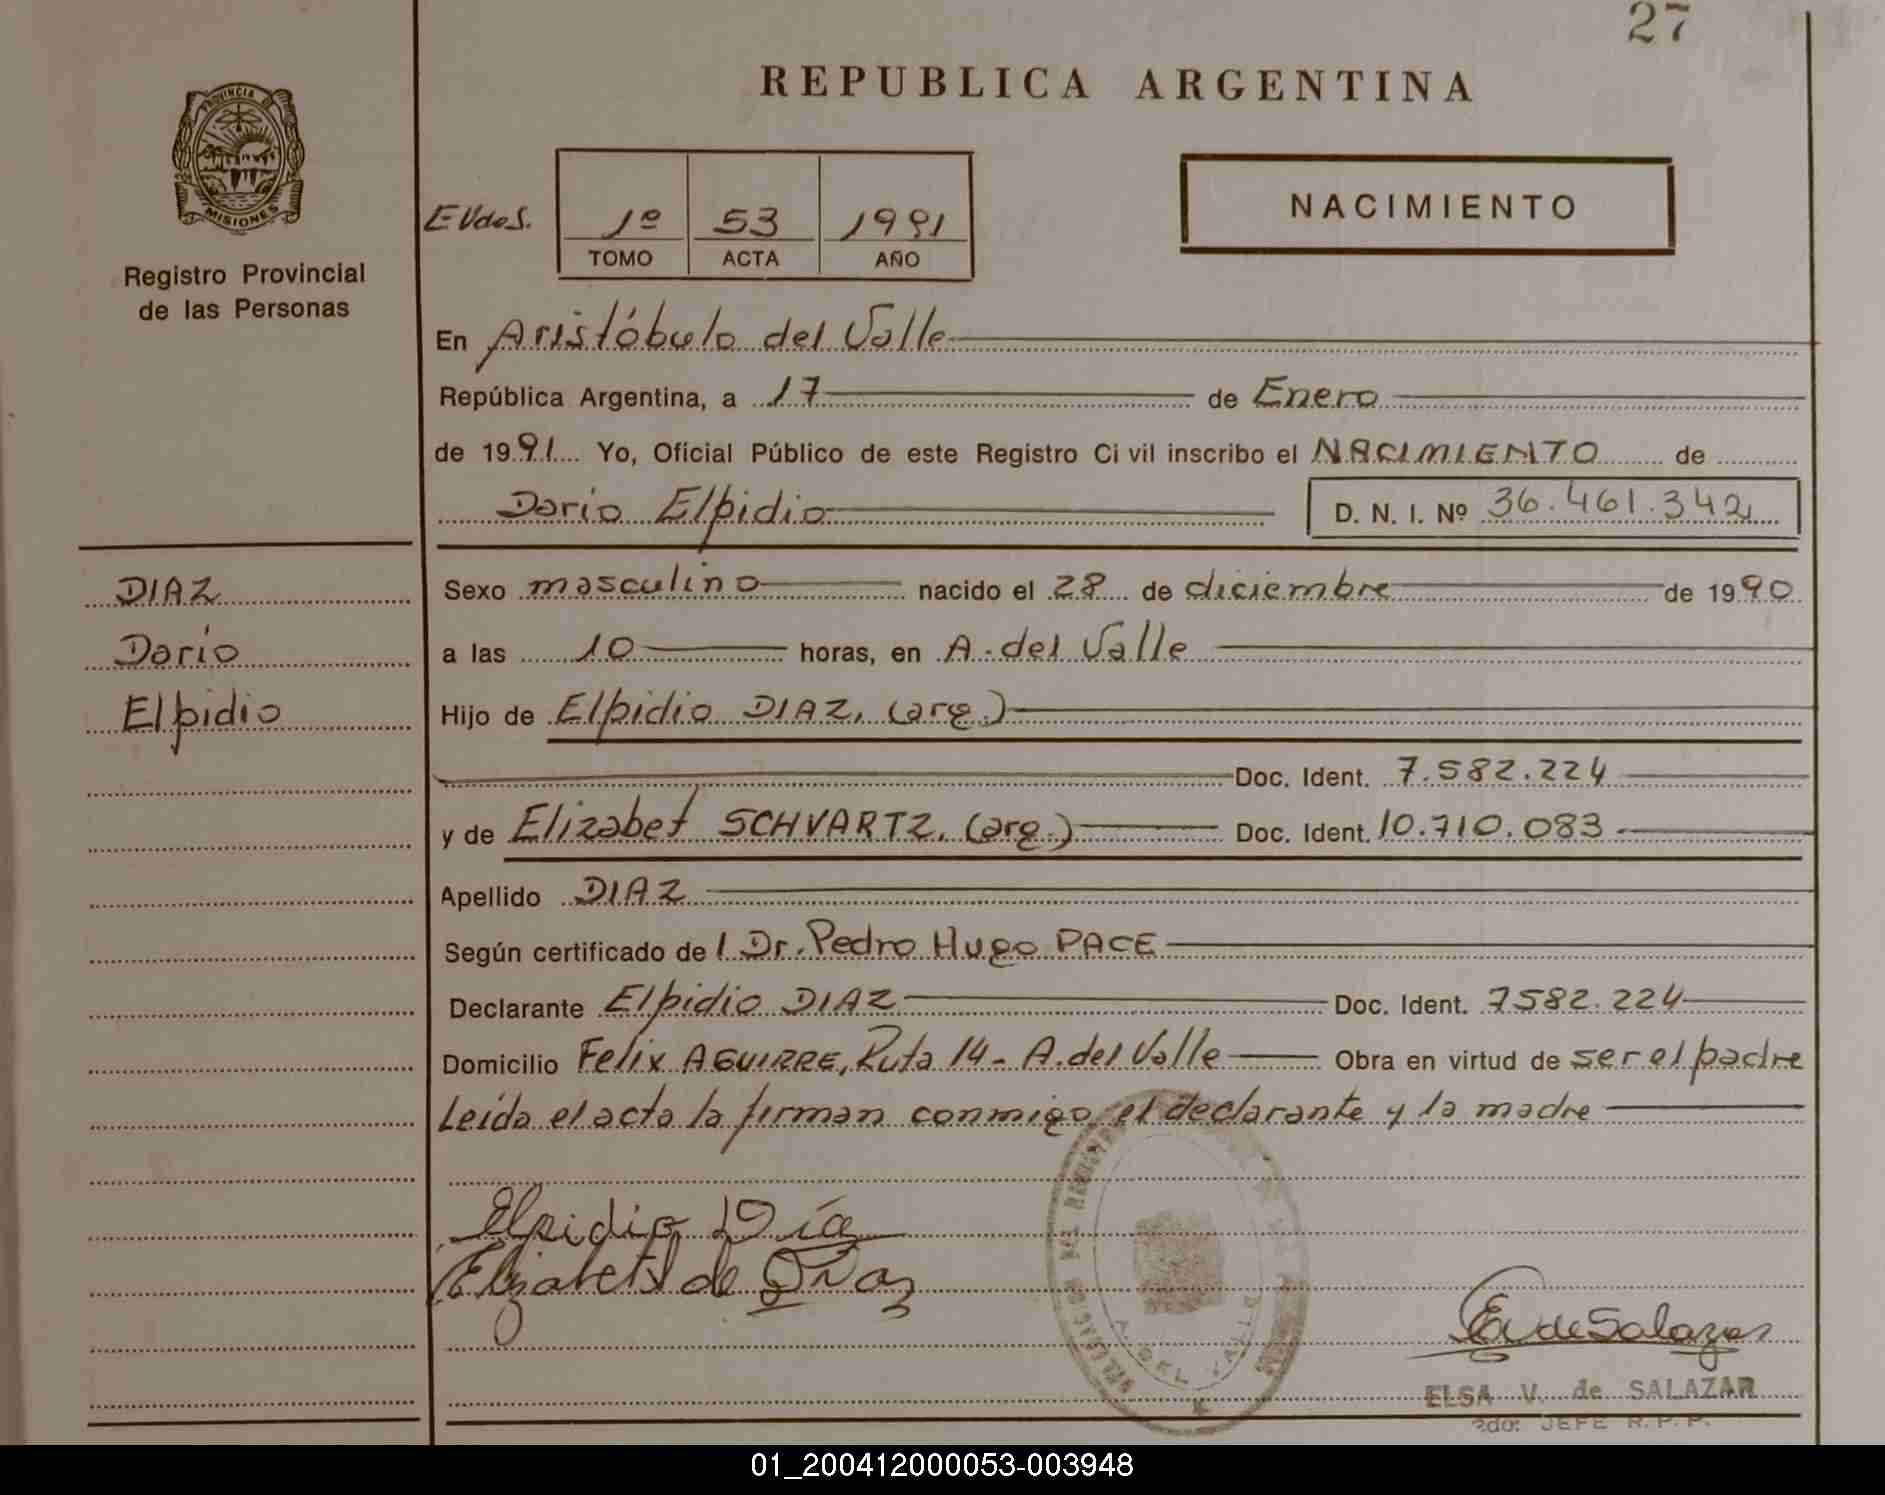 27
REPUBLICA ARGENTINA
PROVINCIA
MISIONES
Registro Provincial
de las Personas
EVdoS.
1º 53 1991
TOMO ACTA AÑO
NACIMIENTO
En Aristóbulo del Valle
República Argentina, a 17 de Enero
de 1991 Yo, Oficial Público de este Registro Ci vil inscribo el NACIMIENTO de
Darío Elpidio D. N. I. Nº 36.461.342
DIAZ
Darío
Elpidio
Sexo masculino nacido el 28 de diciembre de 1990
a las 10 horas, en A. del Valle
Hijo de Elpidio DIAZ, (arg.)
Doc. Ident. 7.582.224
y de Elizabet SCHVARTZ. (arg.) Doc. Ident. 10.710.083
Apellido DIAZ
Según certificado de l Dr. Pedro Hugo PACE
Declarante Elpidio DIAZ Doc. Ident. 7582.224
Domicilio Felix AGUIRRE, Ruta 14 - A. del Valle Obra en virtud de ser el padre
Leída el acta la firman conmigo, el declarante y la madre
Elpidio Día
Elizabeth de Díaz
A. DEL VALLE
E V de Salazar
ELSA V. de SALAZAR
JEFE R. P. P.
01_200412000053-003948